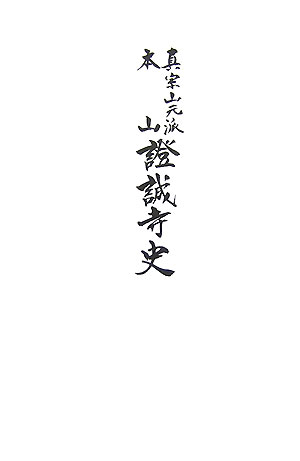 真宗山元派
本山證誠寺史